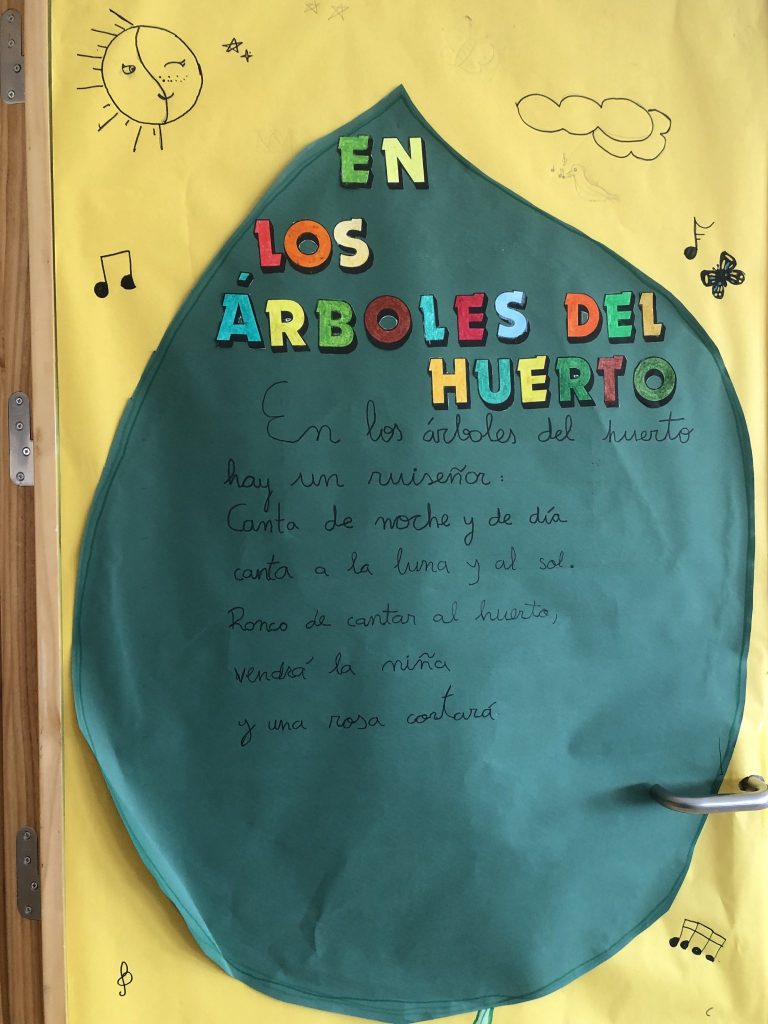 EN
LOS
ÁRBOLES DEL
HUERTO
En los árboles del huerto
hay un ruiseñor:
Canta de noche y de día
canta a la luna y al sol.
Ronco de cantar al huerto,
vendrá la niña
y una rosa cortará